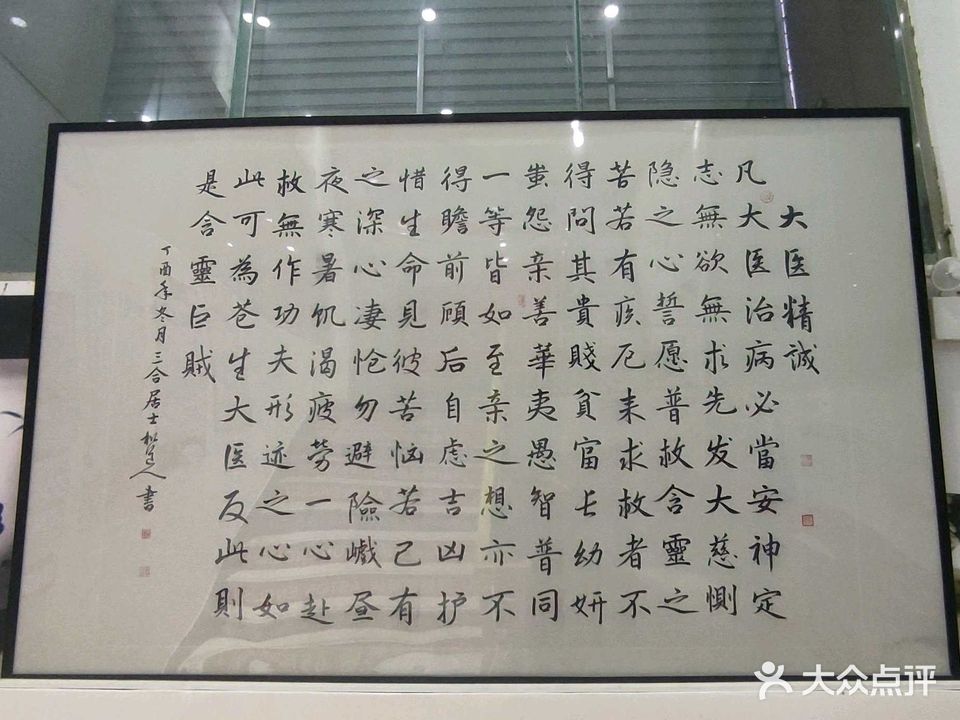 大医精誠
凡大医治病必當安神定
志無欲無求先发大慈惻
隐之心誓愿普救含靈之
苦若有疾厄来求救者不
得問其貴賤貧富长幼妍
蚩怨亲善華夷愚智普同
一等皆如至亲之想亦不
得瞻前顾后自虑吉凶护
惜生命見彼苦恼若己有
之深心凄怆勿避險巇昼
夜寒暑饥渴疲劳一心赴
救無作功夫形迹之心如
此可為苍生大医反此則
是含靈巨賊
丁酉年冬月三合居士人書
大众点评